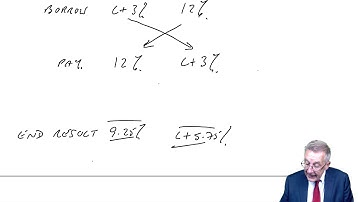 BORROW L+3% 12%
PAY. 12% L+3%
END RESULT 9.25% L+5.75%